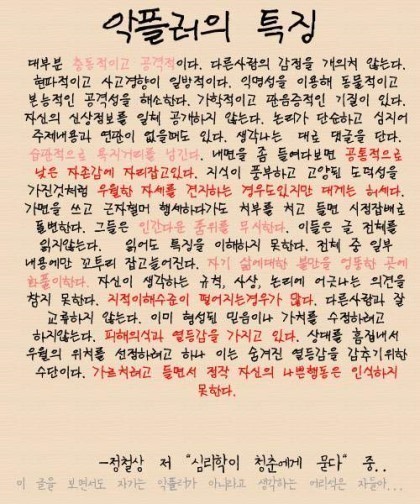 악플러의 특징
대부분 충동적이고 공격적이다. 다른사람의 감정을 개의치 않는다.
현파적이고 사고경향이 일방적이다. 익명성을 이용해 동물적이고
본능적인 공격성을 해소한다. 가학적이고 관음증적인 기질이 있다.
자신의 신상정보를 일체 공개하지 않는다. 논리가 단순하고 심지어
주제내용과 연관이 없을때도 있다. 생각나는 대로 댓글을 단다.
습관적으로 욕지거리를 남긴다. 내면을 좀 들여다보면 공통적으로
낮은 자존감에 자리잡고있다. 지식이 풍부하고 고양된 도덕성을
가진것처럼 우월한 자세를 견지하는 경우도있지만 대개는 허세다.
가면을 쓰고 근자형머 행세하다가도 치부를 치고 들면 시정잡배로
돌변한다. 그들은 인간다운 품위를 무시한다. 이들은 글 전체를
읽지않는다. 읽어도 특징을 이해하지 못한다. 전체 중 일부
내용에만 꼬투리 잡고늘어진다. 자기 삶에대한 불만을 엉뚱한 곳에
화풀이한다. 자신이 생각하는 규칙, 사상, 논리에 어긋나는 의견을
참지 못한다. 지적이해수준이 떨어지는경우가 많다. 다른사람과 잘
교류하지 않는다. 이미 형성된 믿음이나 가치를 수정하려고
하지않는다. 피해의식과 열등감을 가지고 있다. 상대를 흠집내서
우월의 위치를 선점하려고 하나 이는 숨겨진 열등감을 감추기위한
수단이다. 가르치려고 들면서 정작 자신의 나쁜행동은 인식하지
못한다.
-정철상 저 "심리학이 청춘에게 묻다" 중..
이 글을 보면서도 자기는 악플러가 아니라고 생각하는 어리석은 자들아...